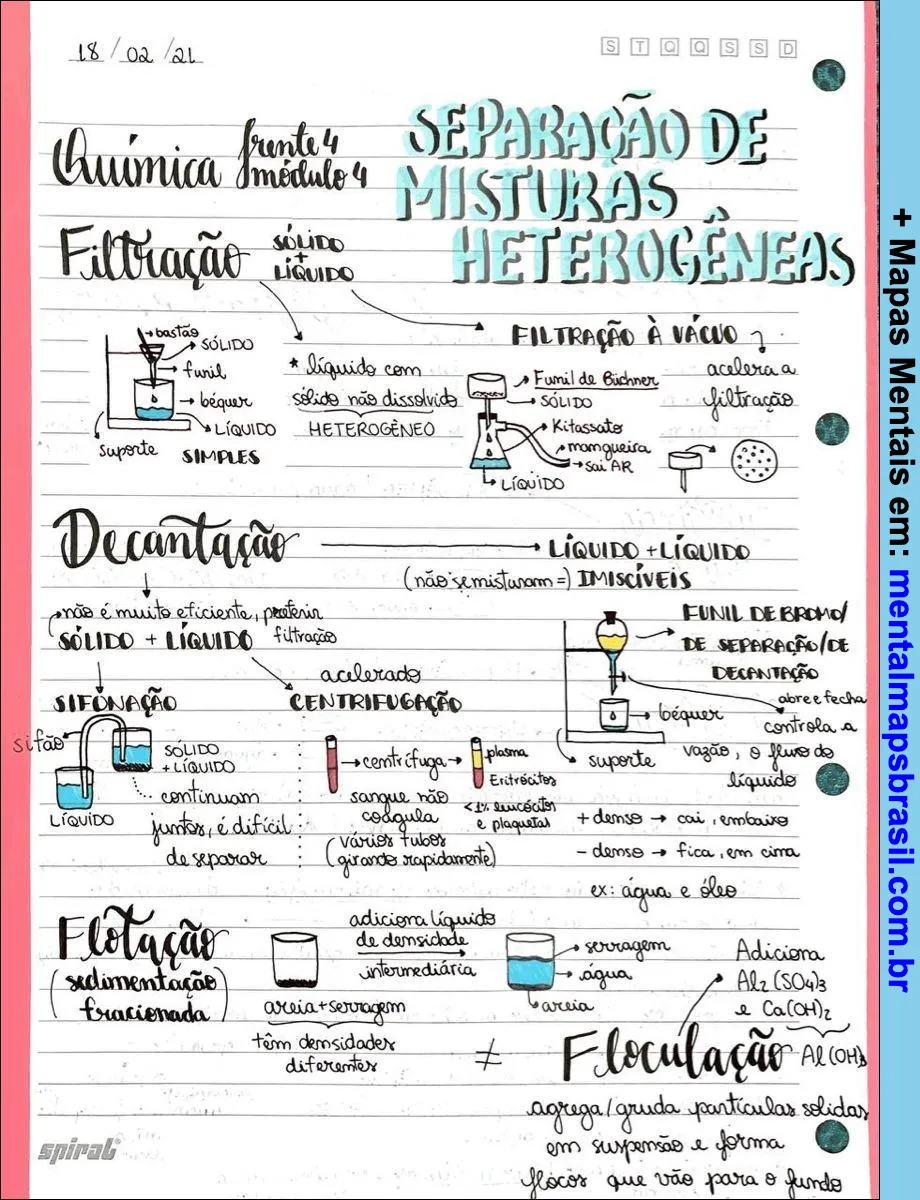 18/02/21
S T Q Q S S D
Química frente 4
módulo 4
SEPARAÇÃO DE
MISTURAS
HETEROGÊNEAS
Filtração
SÓLIDO
+
LÍQUIDO
bastão
SÓLIDO
funil
béquer
LÍQUIDO
suporte
SIMPLES
* líquido com
sólido não dissolvido
HETEROGÊNEO
FILTRAÇÃO À VÁCUO
acelera a
filtração
Funil de Büchner
SÓLIDO
Kitassato
mamgueira
sai AR
LÍQUIDO
Decantação
LÍQUIDO + LÍQUIDO
(não se misturam =) IMISCÍVEIS
não é muito eficiente, preferir
filtração
SÓLIDO + LÍQUIDO
SIFONAÇÃO
sifão
SÓLIDO
+ LÍQUIDO
LÍQUIDO
continuam
juntos, é difícil
de separar
acelerado
CENTRIFUGAÇÃO
centrífuga
plasma
Eritrócitos
<1% leucócitos
e plaquetas
sangue não
coagula
(vários tubos
girando rapidamente)
FUNIL DE BROMO/
DE SEPARAÇÃO/DE
DECANTAÇÃO
abre e fecha
controla a
vazão, o fluxo do
líquido
béquer
suporte
+ denso → cai, embaixo
- denso → fica, em cima
ex: água e óleo
Flotação
(sedimentação
fracionada)
areia+serragem
têm densidades
diferentes
adiciona líquido
de densidade
intermediária
serragem
água
areia
≠
Floculação
Adiciona
Al₂(SO₄)₃
e Ca(OH)₂
Al(OH)₃
agrega/gruda partículas solidas
em suspensão e forma
flocos que vão para o fundo
spiral
+ Mapas Mentais em: mentalmapsbrasil.com.br